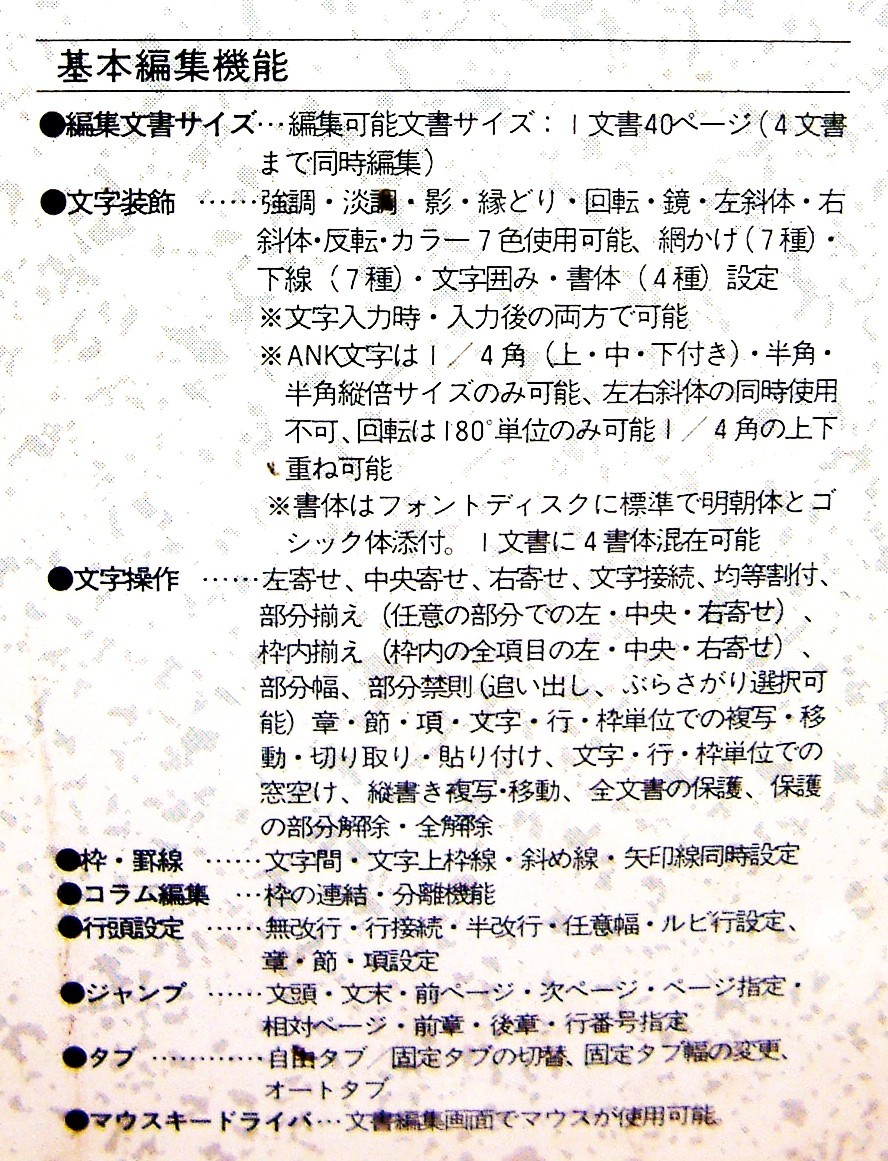 基本編集機能
●編集文書サイズ…編集可能文書サイズ：1文書40ページ（4文書
まで同時編集）
●文字装飾 ……強調・淡調・影・縁どり・回転・鏡・左斜体・右
斜体・反転・カラー7色使用可能、網かけ（7種）・
下線（7種）・文字囲み・書体（4種）設定
※文字入力時・入力後の両方で可能
※ANK文字は1／4角（上・中・下付き）・半角・
半角縦倍サイズのみ可能、左右斜体の同時使用
不可、回転は180°単位のみ可能1／4角の上下
重ね可能
※書体はフォントディスクに標準で明朝体とゴ
シック体添付。1文書に4書体混在可能
●文字操作 ……左寄せ、中央寄せ、右寄せ、文字接続、均等割付、
部分揃え（任意の部分での左・中央・右寄せ）、
枠内揃え（枠内の全項目の左・中央・右寄せ）、
部分幅、部分禁則（追い出し、ぶらさがり選択可
能）章・節・項・文字・行・枠単位での複写・移
動・切り取り・貼り付け、文字・行・枠単位での
窓空け、縦書き複写・移動、全文書の保護、保護
の部分解除・全解除
●枠・罫線 ……文字間・文字上枠線・斜め線・矢印線同時設定
●コラム編集 …枠の連結・分離機能
●行頭設定 ……無改行・行接続・半改行・任意幅・ルビ行設定、
章・節・項設定
●ジャンプ ……文頭・文末・前ページ・次ページ・ページ指定・
相対ページ・前章・後章・行番号指定
●タブ …………自由タブ／固定タブの切替、固定タブ幅の変更、
オートタブ
●マウスキードライバ…文書編集画面でマウスが使用可能